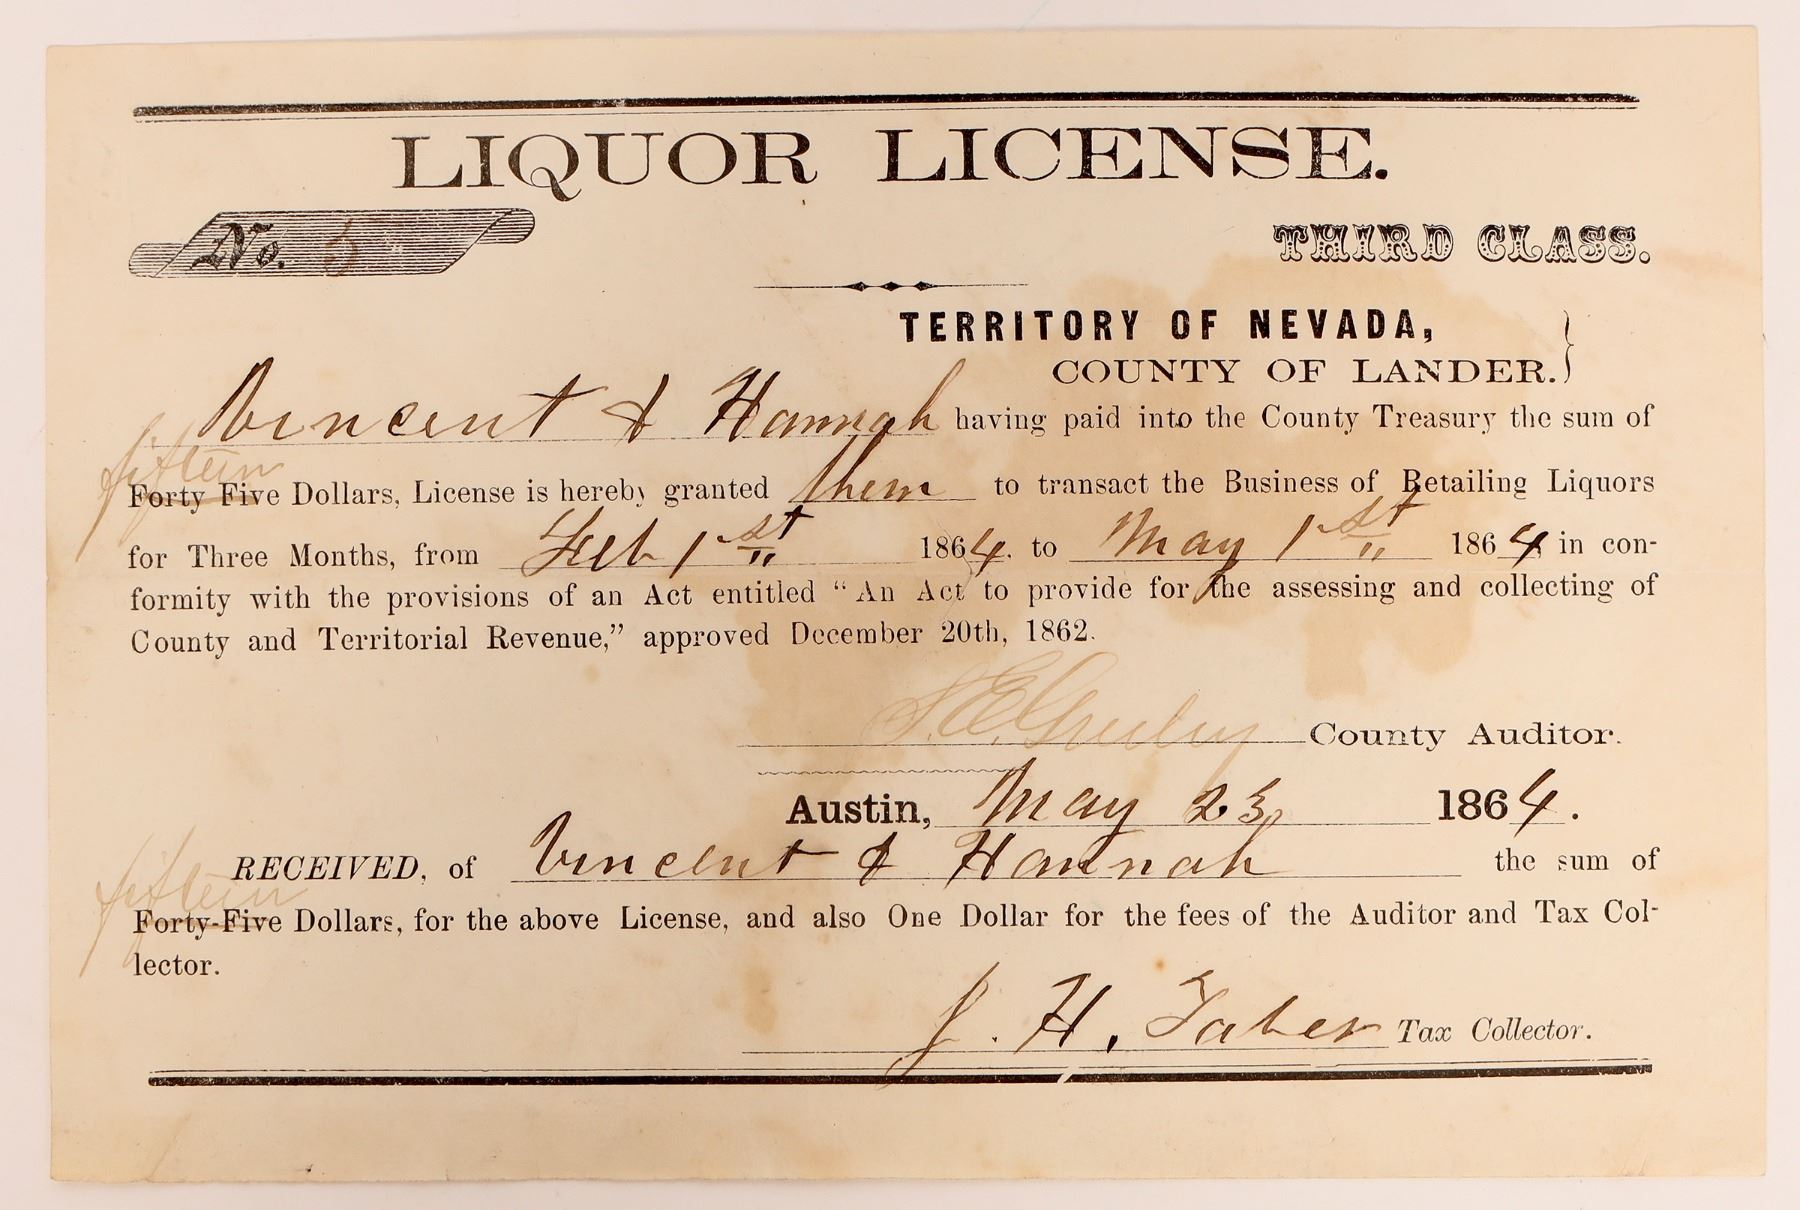 LIQUOR LICENSE.
No. 3
THIRD CLASS.
TERRITORY OF NEVADA,
COUNTY OF LANDER.}
Vincent & Hannah having paid into the County Treasury the sum of
fifteen
Forty Five Dollars, License is hereby granted them to transact the Business of Retailing Liquors
for Three Months, from Feb 1st 1864. to May 1st 1864 in con-
formity with the provisions of an Act entitled “An Act to provide for the assessing and collecting of
County and Territorial Revenue,” approved December 20th, 1862.
County Auditor.
Austin, May 23, 1864.
RECEIVED, of Vincent & Hannah the sum of
fifteen
Forty-Five Dollars, for the above License, and also One Dollar for the fees of the Auditor and Tax Col-
lector.
J. H. Taber Tax Collector.